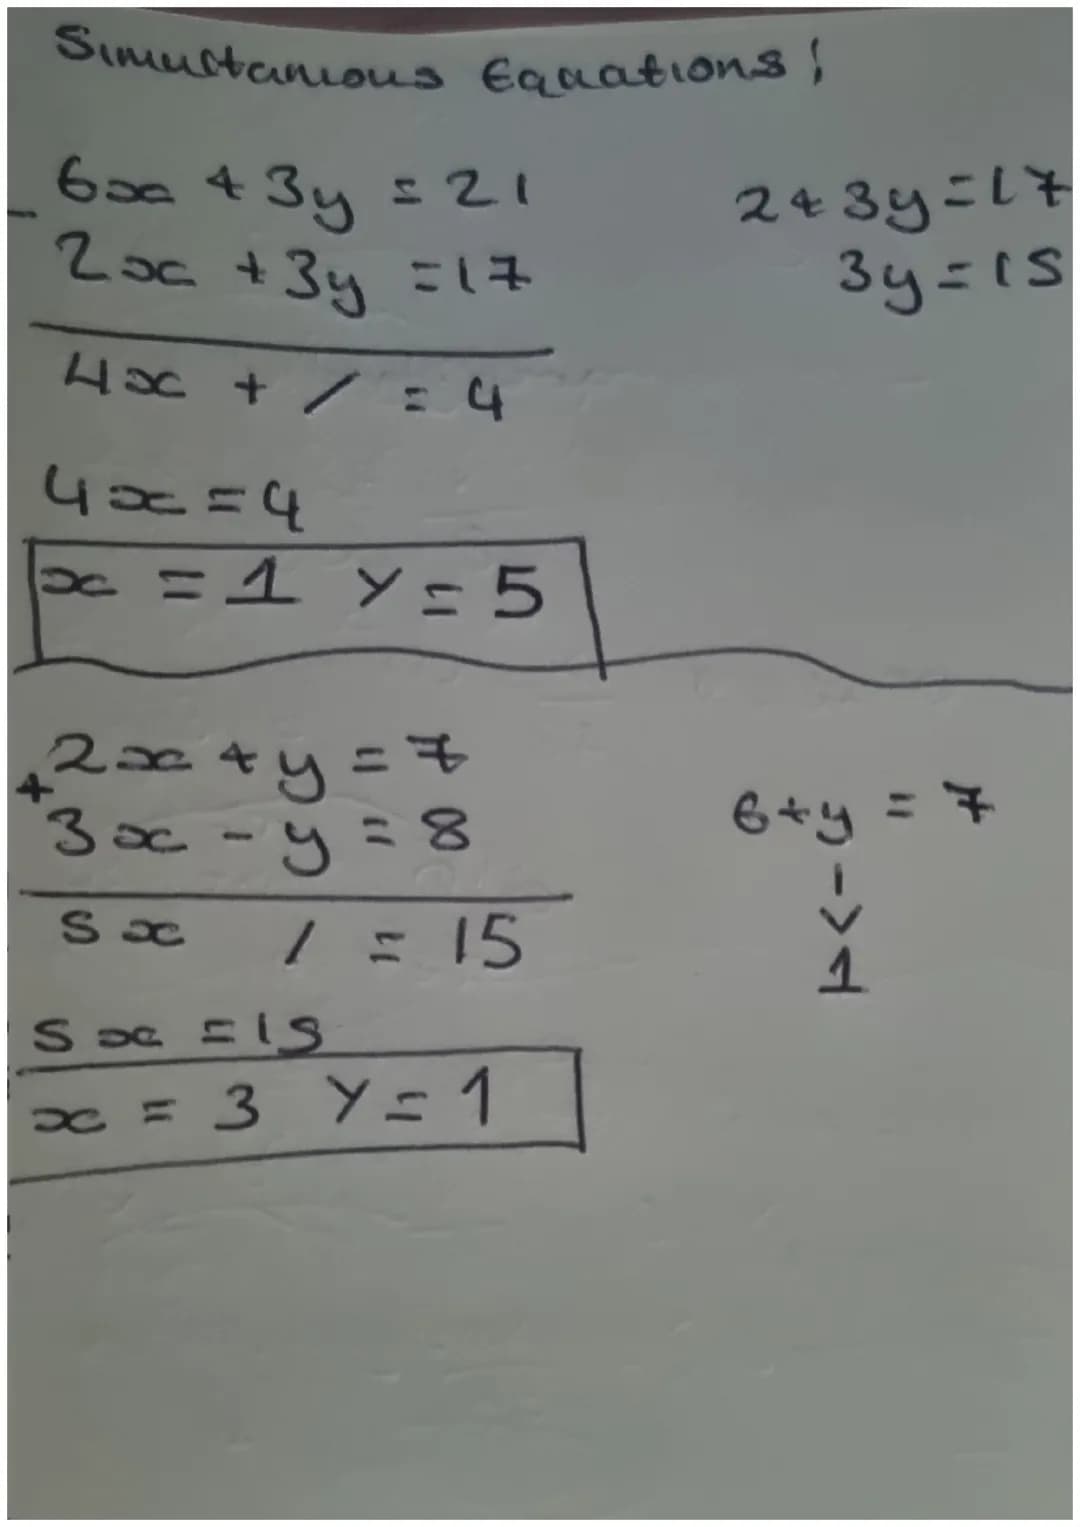 Simultanious Equations!
6x + 3y = 21
- 2x + 3y = 17
4x + / = 4
4x = 4
x = 1 Y = 5
2 + 3y = 17
3y = 15
2x + y = 7
+ 3x - y = 8
5x / = 15
5x = 15
x = 3 Y = 1
6 + y = 7
1